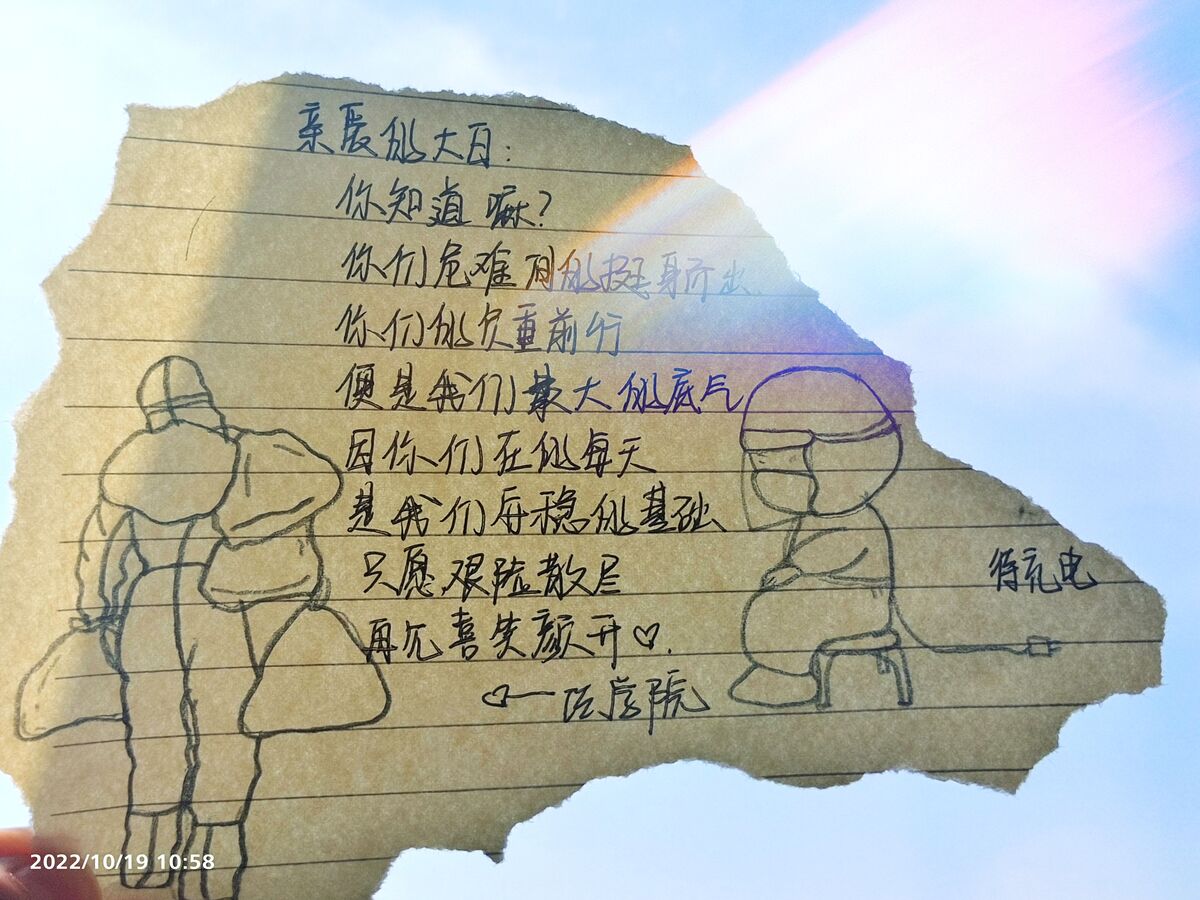 亲爱的大白：
你知道嘛？
你们危难时的挺身而出、
你们的负重前行
便是我们最大的底气
因你们在的每天
是我们安稳的基础、
只愿艰险散尽
再允喜笑颜开♡.
♡一医学院
待充电
2022/10/19 10:58